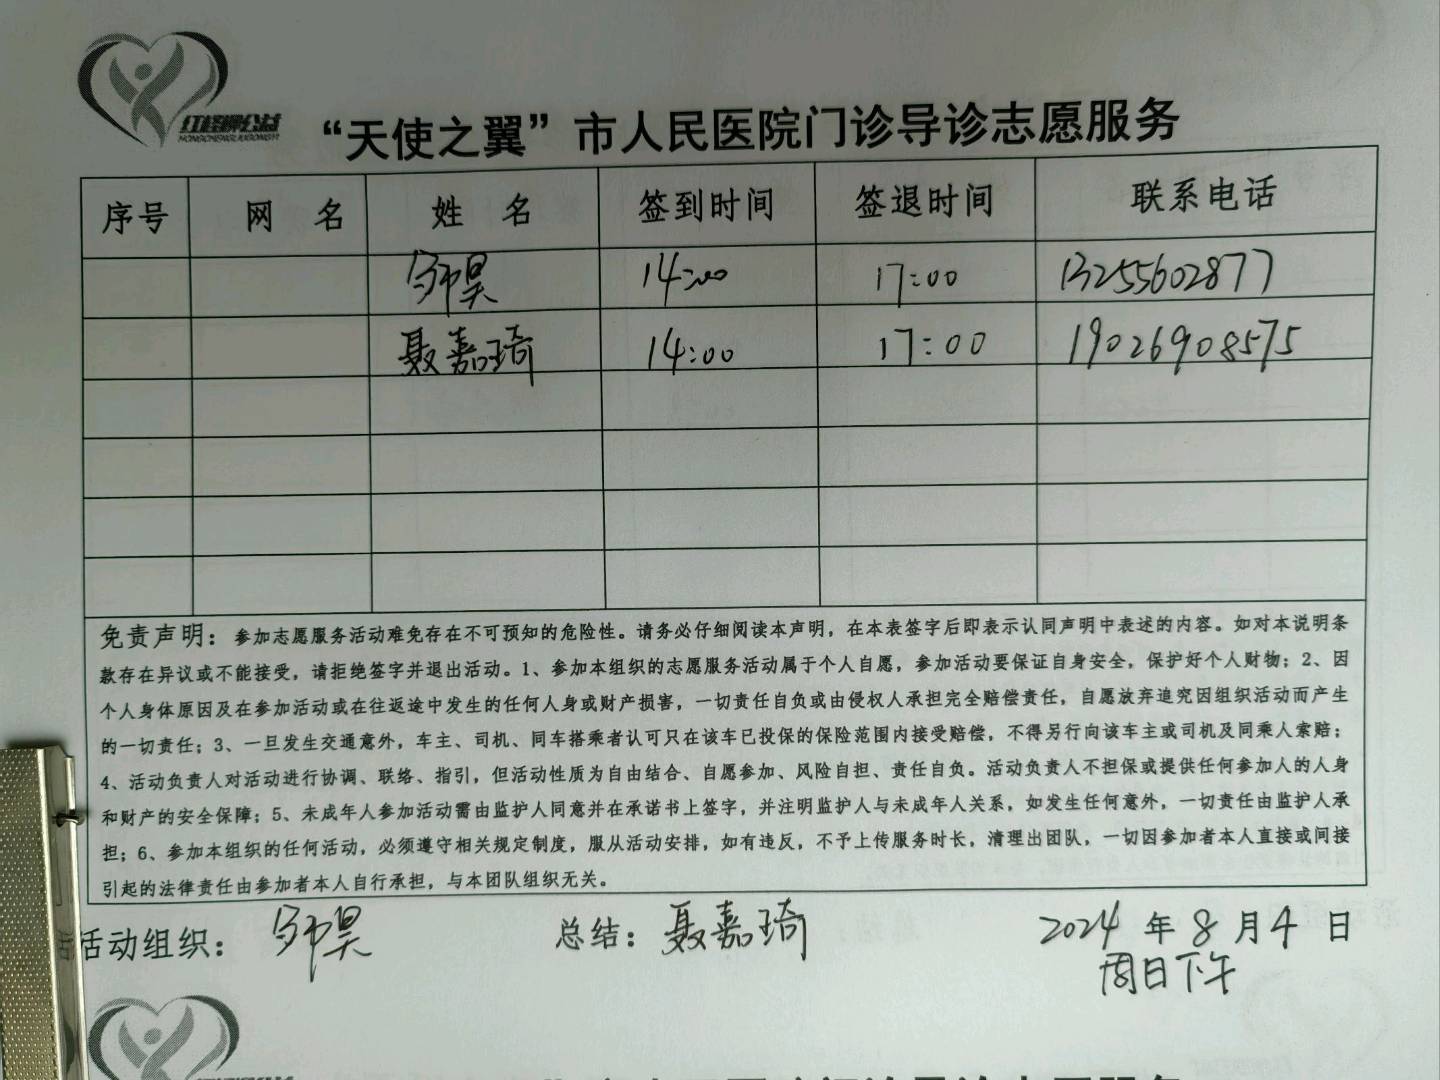 红橙柳公益
HONGCHENGLIUGONGYI
“天使之翼”市人民医院门诊导诊志愿服务
序号 网 名 姓 名 签到时间 签退时间 联系电话
14:00 17:00 13255602877
聂嘉琦 14:00 17:00 19026908575
免责声明：参加志愿服务活动难免存在不可预知的危险性。请务必仔细阅读本声明，在本表签字后即表示认同声明中表述的内容。如对本说明条
款存在异议或不能接受，请拒绝签字并退出活动。1、参加本组织的志愿服务活动属于个人自愿，参加活动要保证自身安全，保护好个人财物；2、因
个人身体原因及在参加活动或在往返途中发生的任何人身或财产损害，一切责任自负或由侵权人承担完全赔偿责任，自愿放弃追究因组织活动而产生
的一切责任；3、一旦发生交通意外，车主、司机、同车搭乘者认可只在该车已投保的保险范围内接受赔偿，不得另行向该车主或司机及同乘人索赔；
4、活动负责人对活动进行协调、联络、指引，但活动性质为自由结合、自愿参加、风险自担、责任自负。活动负责人不担保或提供任何参加人的人身
和财产的安全保障；5、未成年人参加活动需由监护人同意并在承诺书上签字，并注明监护人与未成年人关系，如发生任何意外，一切责任由监护人承
担；6、参加本组织的任何活动，必须遵守相关规定制度，服从活动安排，如有违反，不予上传服务时长，清理出团队，一切因参加者本人直接或间接
引起的法律责任由参加者本人自行承担，与本团队组织无关。
活动组织： 总结：聂嘉琦 2024年8月4日
周日下午